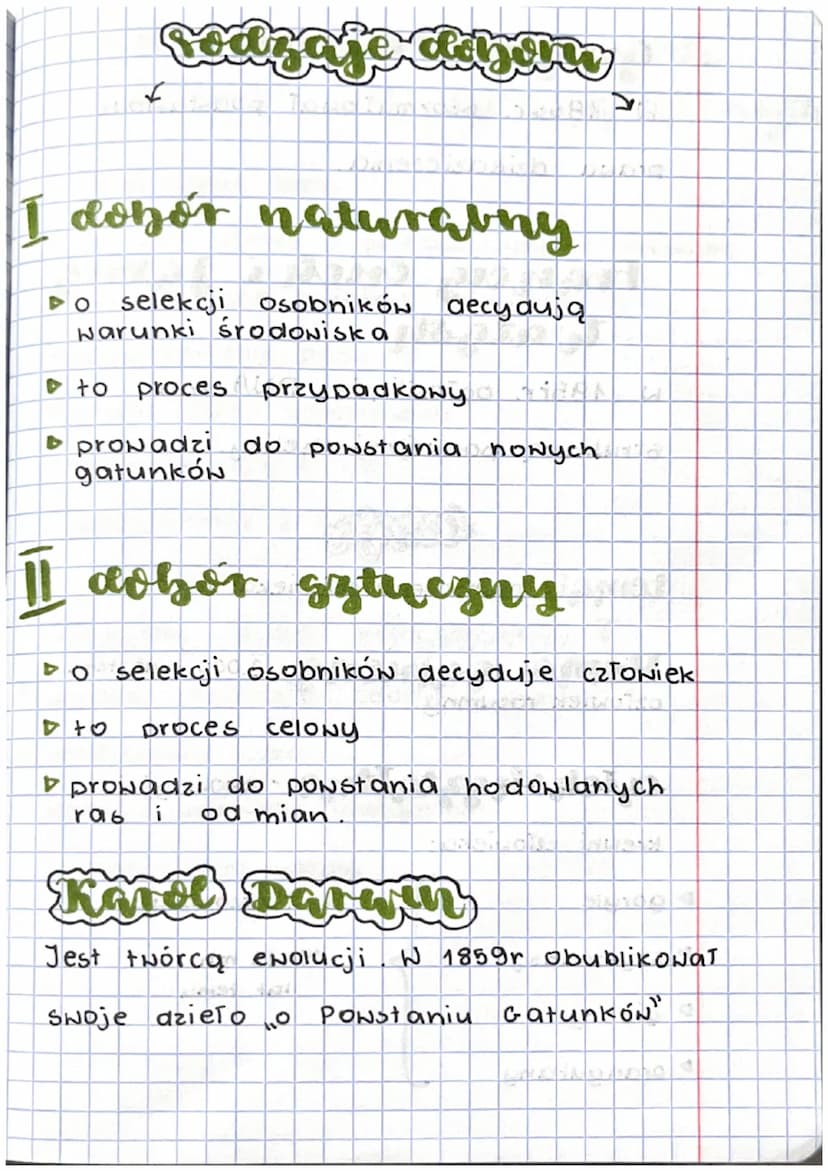 rodzaje doboru
I dobór naturalny
o selekcji osobników decydują
warunki środowiska
to proces przypadkowy
prowadzi do powstania nowych
gatunków
II dobór sztuczny
o selekcji osobników decyduje człowiek
to proces celowy
prowadzi do powstania hodowlanych
ras i odmian.
Karol Darwin
Jest twórcą ewolucji. W 1859r obublikował
swoje dzieło „o Powstaniu Gatunków"